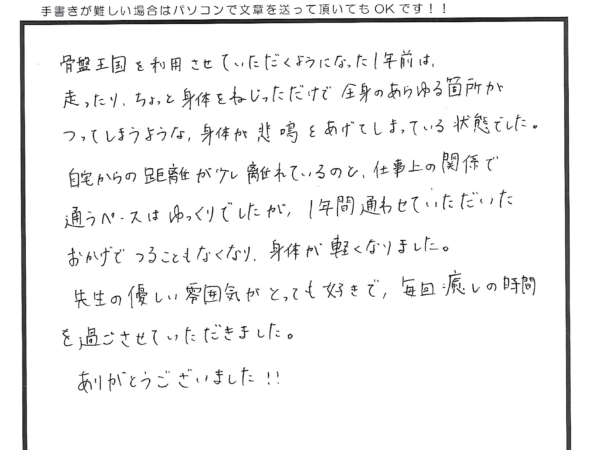 手書きが難しい場合はパソコンで文章を送って頂いてもOKです！！
骨盤王国を利用させていただくようになった1年前は、
走ったり、ちょっと身体をねじっただけで全身のあらゆる箇所が
つってしまうような、身体が悲鳴をあげてしまっている状態でした。
自宅からの距離が少し離れているのと、仕事上の関係で
通うペースはゆっくりでしたが、1年間通わせていただいた
おかげでつることもなくなり、身体が軽くなりました。
先生の優しい雰囲気がとっても好きで、毎回癒しの時間
を過ごさせていただきました。
ありがとうございました!!